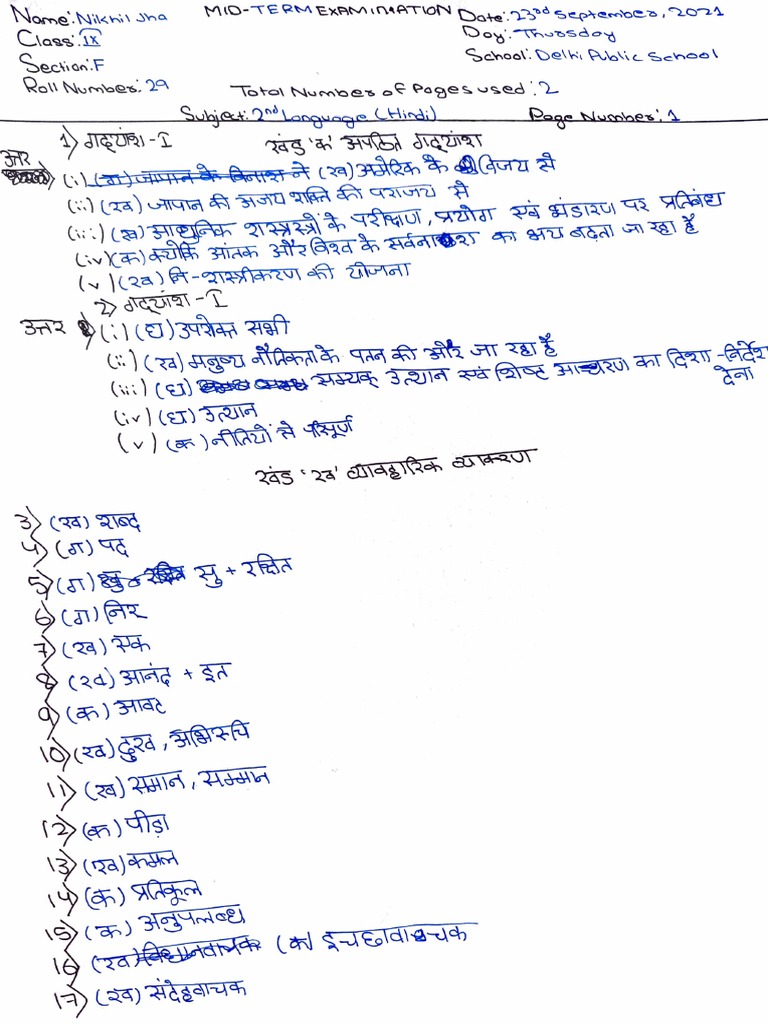 Name: Nikhil Jha MID-TERM EXAMINATION Date: 23rd September, 2021
Class: IX Day: Thursday
Section: F School: Delhi Public School
Roll Number: 29 Total Number of Pages used: 2
Subject: 2nd Language (Hindi) Page Number: 1
1) गद्यांश-I खंड 'क' अपठित गद्यांश
उत्तर
(i) (ग) जापान के विनाश ने (ख) अमेरिक के विजय से
(ii) (ख) जापान की अजय शक्ति की पराजय से
(iii) (ख) आधुनिक शास्त्रस्त्रों के परीक्षण, प्रयोग एवं भंडारण पर प्रतिबंध
(iv) (क) क्योंकि आंतक और विश्व के सर्वनाश का भय बढ़ता जा रहा है
(v) (ख) नि-शस्त्रीकरण की योजना
2) गद्यांश-I
उत्तर (i) (घ) उपरोक्त सभी
(ii) (ख) मनुष्य नैतिकता के पतन की ओर जा रहा है
(iii) (घ) सम्यक् उत्थान एवं शिष्ट आचरण का दिशा-निर्देश
देना
(iv) (घ) उत्थान
(v) (क) नीतियों से परिपूर्ण
खंड 'ख' व्यावहारिक व्याकरण
3) (ख) शब्द
4) (ग) पद
5) (ग) सु + रक्षित
6) (ग) निर्
7) (ख) एक
8) (ख) आनंद + इत
9) (क) आवट
10) (ख) दुख, अभिरुचि
11) (ख) समान, सम्मान
12) (क) पीड़ा
13) (ख) कमल
14) (क) प्रतिकूल
15) (क) अनुपलब्ध
16) (ख) विधानवाचक (क) इचछावाचक
17) (ख) संदेहवाचक